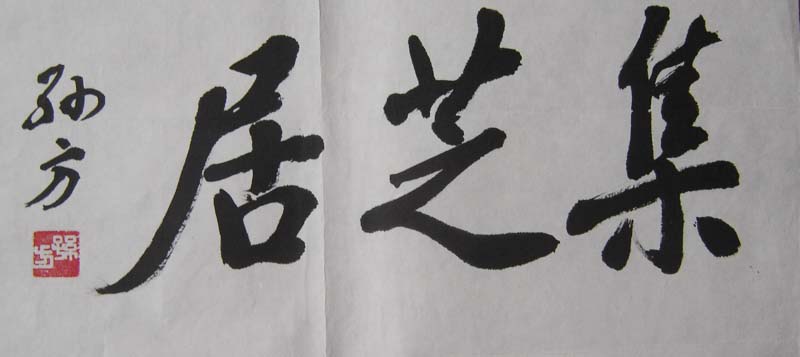 集芝居
孙方